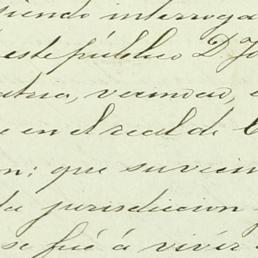 siendo interroga
este público D. Jo
atria, vecindad, e
e en el real de C
on: que su vecin
da jurisdiccion
se fué á vivír